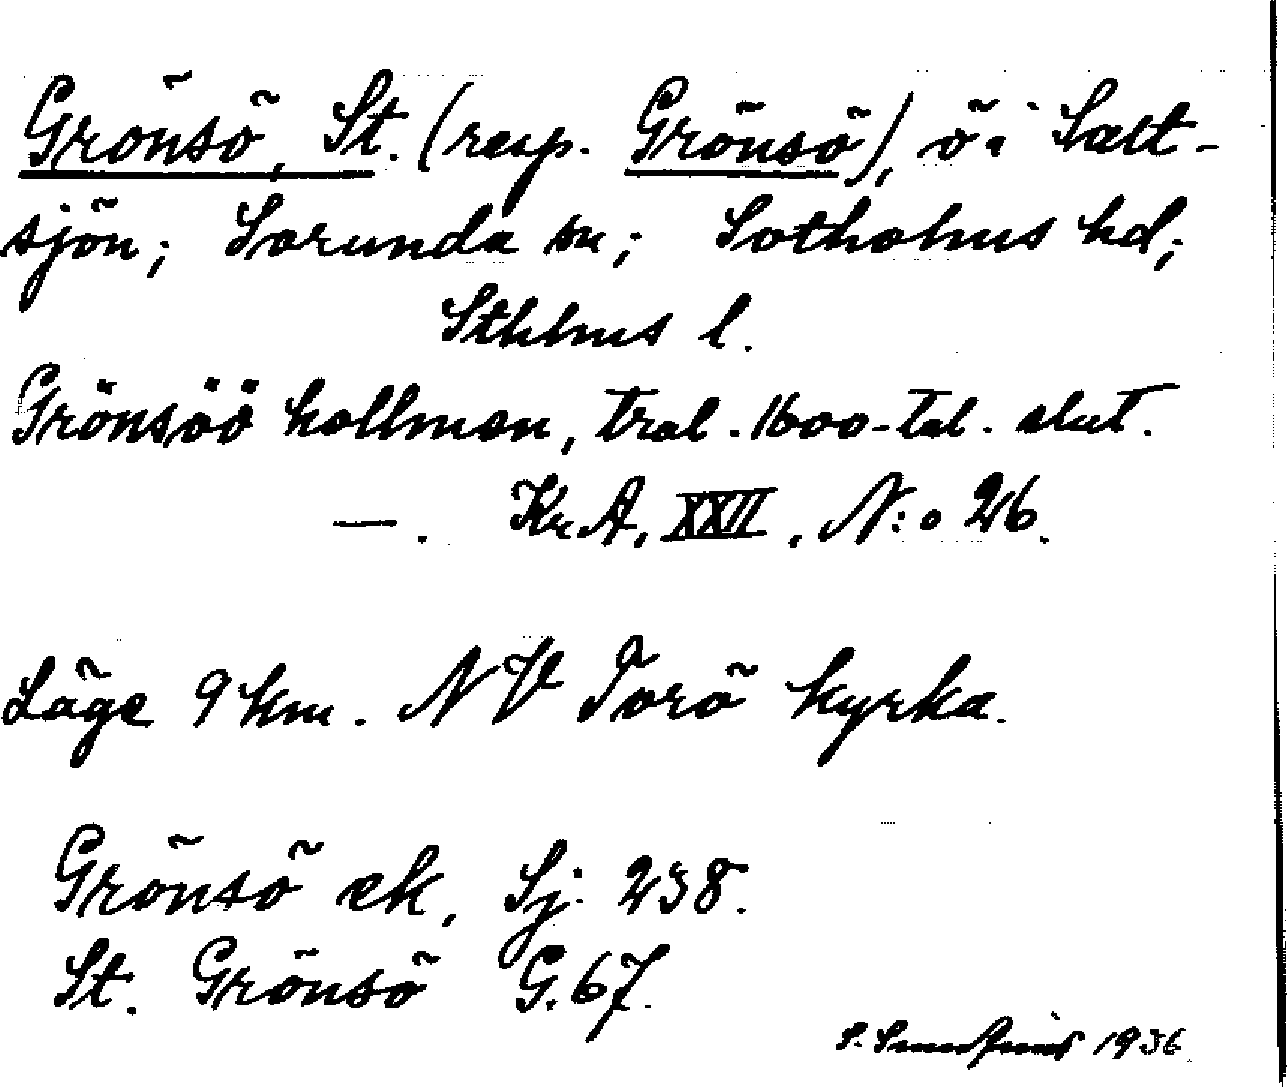 Grönsö, St. (resp. Grönsö), ö i Salt-
sjön; Sorunda sn; Sotholms hd;
Sthlms l.
Grönsöö hollmen, trol. 1600-tal. slut.
—. Kr. A. XXII, N:o 26.
Läge 9 km. NV Torö kyrka.
Grönsö ek, Sj. 238.
St. Grönsö G. 67.
S. 1936